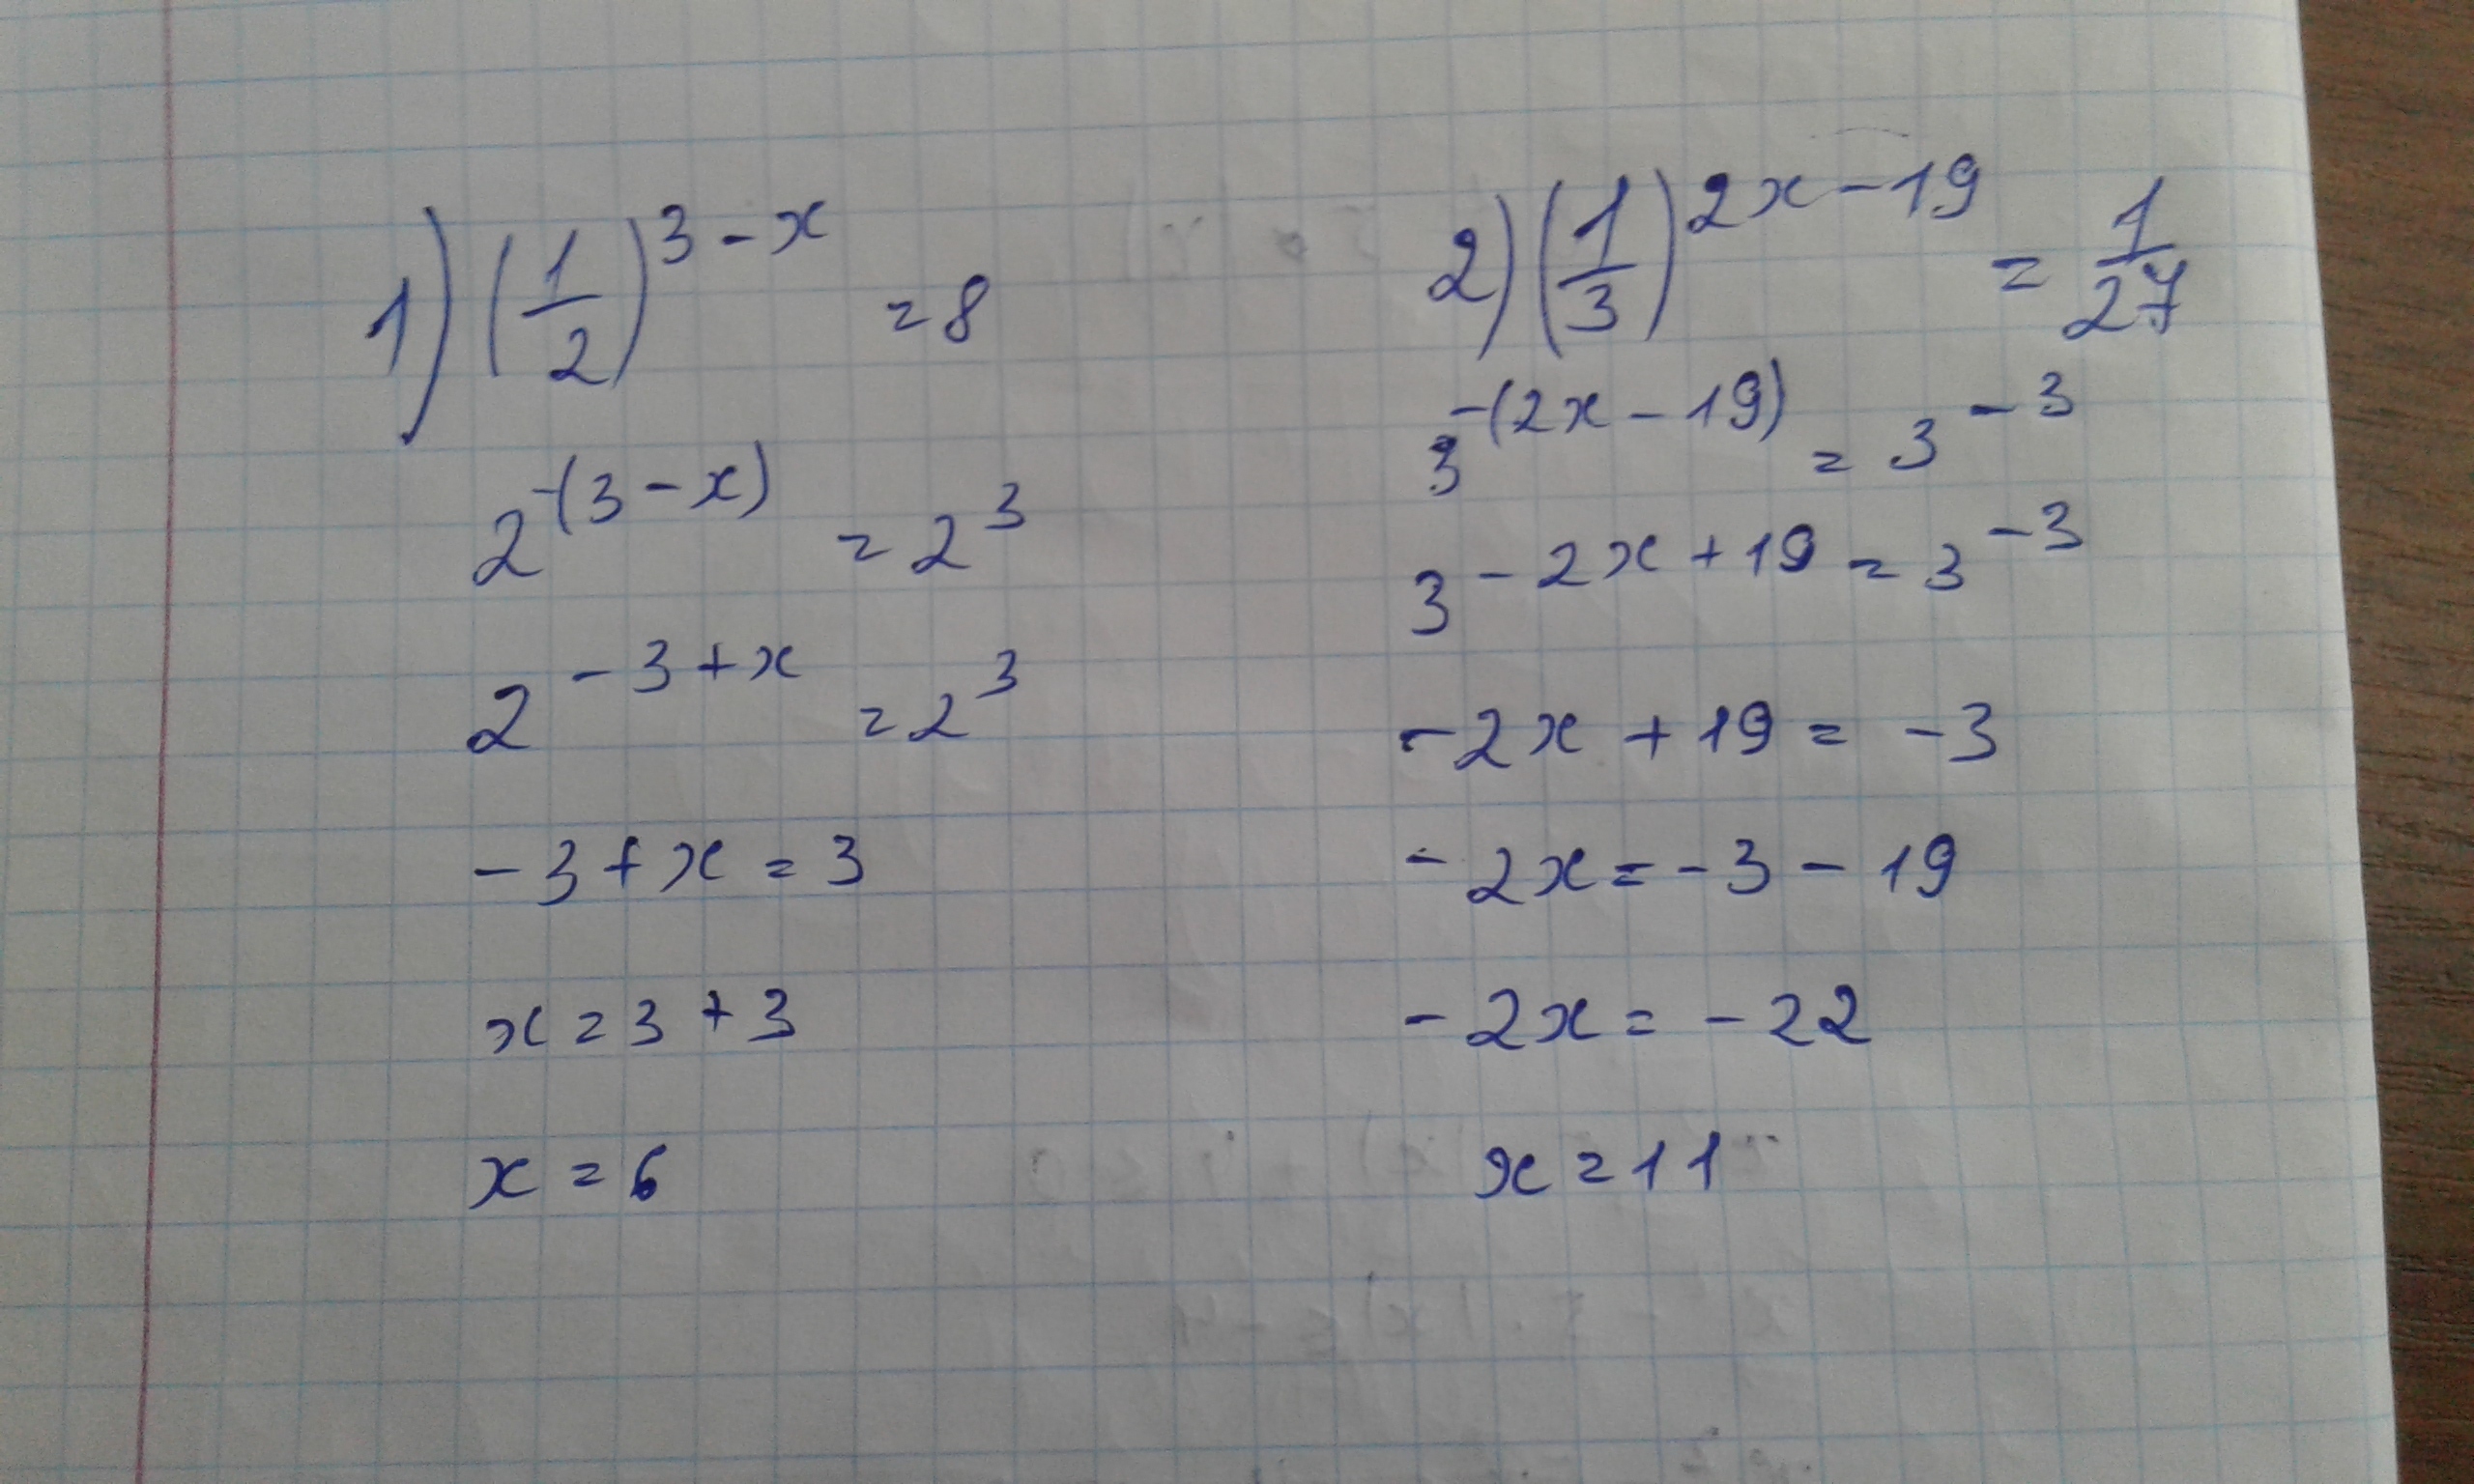 1) (1/2)^(3-x) = 8
2^(-(3-x)) = 2^3
2^(-3+x) = 2^3
-3+x=3
x=3+3
x=6
2) (1/3)^(2x-19) = 1/27
3^(-(2x-19)) = 3^(-3)
3^(-2x+19) = 3^(-3)
-2x+19=-3
-2x=-3-19
-2x=-22
x=11